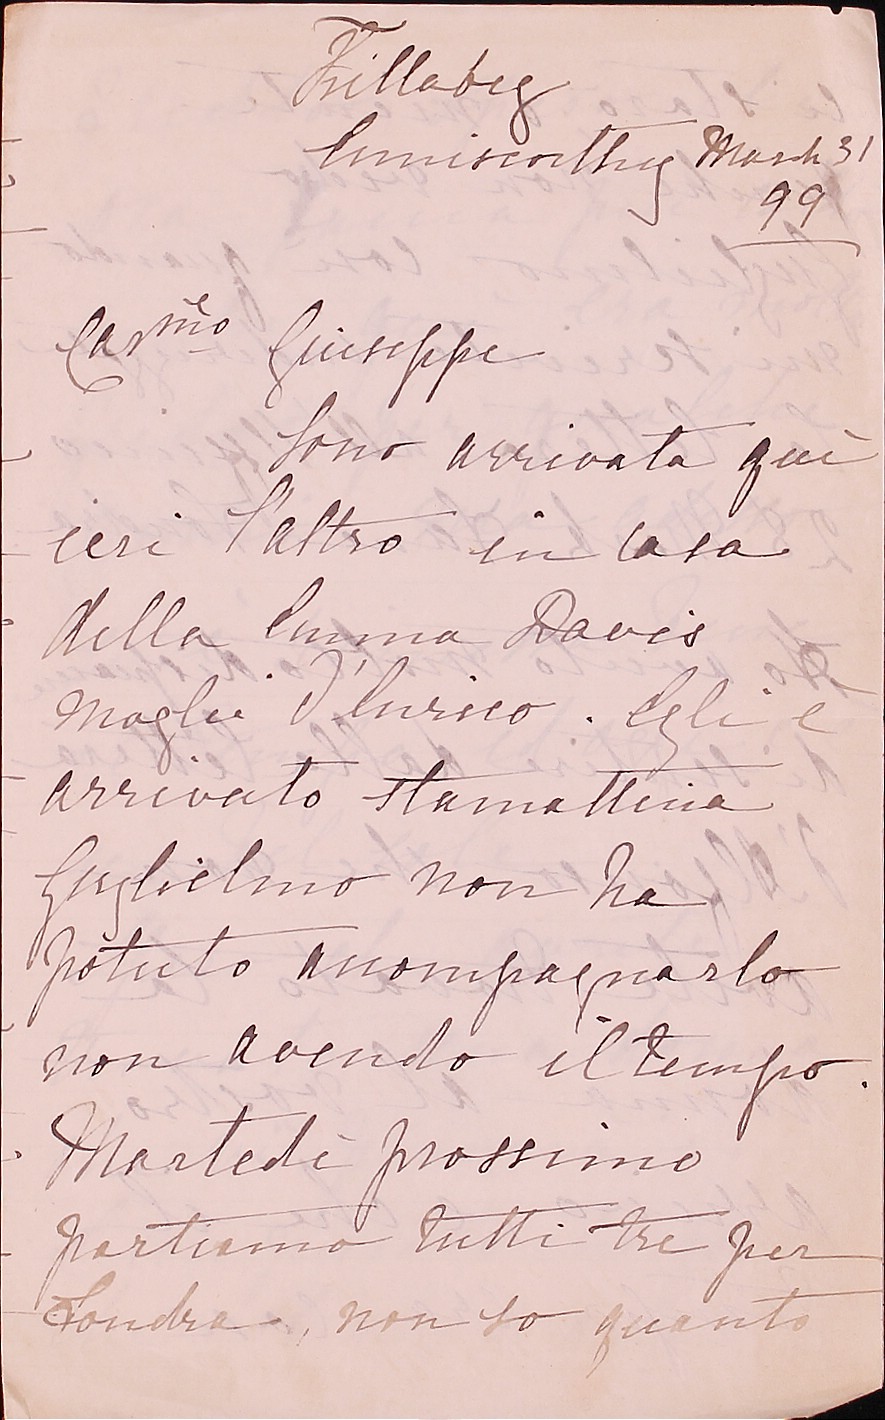 Killabeg
Enniscorthy March 31
99
Carmo Giuseppe
Sono arrivata quì
ieri l'altro in casa
della Emma Davis
moglie d'Enrico. Egli è
arrivato stamattina
Guglielmo non ha
potuto accompagnarlo
non avendo il tempo.
Martedì prossimo
partiamo tutti tre per
Londra, non so quanto